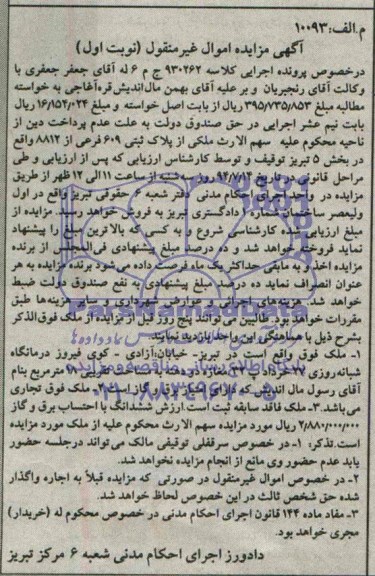 م.الف: ۱۰۰۹۳
آگهی مزایده اموال غیرمنقول (نوبت اول)
درخصوص پرونده اجرایی کلاسه ۹۳۰۲۶۲ ج م ۶ له آقای جعفر جعفری با
وکالت آقای رنجبریان و بر علیه آقای بهمن مال‌اندیش‌قره‌آغاجی به خواسته
مطالبه مبلغ ۳۹۵/۷۳۵/۸۵۳ ریال از بابت اصل خواسته و مبلغ ۱۶/۱۵۲/۰۲۴ ریال
بابت نیم عشر اجرایی در حق صندوق دولت به علت عدم پرداخت دین از
ناحیه محکوم علیه سهم الارث ملکی از پلاک ثبتی ۶۰۹ فرعی از ۸۸۱۲ واقع
در بخش ۵ تبریز توقیف و توسط کارشناس ارزیابی که پس از ارزیابی و طی
مراحل قانونی در تاریخ ۹۴/۷/۱۴ روز سه‌شنبه از ساعت ۱۱ الی ۱۲ ظهر از طریق
مزایده در واحد اجرای احکام مدنی دفتر شعبه ۶ حقوقی تبریز واقع در اول
ولیعصر ساختمان شماره ۱ دادگستری تبریز به فروش خواهد رسید. مزایده از
مبلغ ارزیابی شده کارشناسی شروع و به کسی که بالاترین مبلغ را پیشنهاد
نماید فروخته خواهد شد و ده درصد مبلغ پیشنهادی فی‌المجلس از برنده
مزایده اخذ و به مابقی حداکثر یک ماه فرصت داده می‌شود برنده مزایده به هر
عنوان انصراف نماید ده درصد مبلغ پیشنهادی به نفع صندوق دولت ضبط
خواهد شد. هزینه‌های اجرائی و عوارض شهرداری و سایر هزینه‌ها طبق
مقررات خواهد بود. طالبین می توانند پنج روز قبل از مزایده از ملک فوق‌الذکر
بشرح ذیل با هماهنگی این واحد بازدید نمایند.
۱- ملک فوق واقع است در تبریز- خیابان آزادی - کوی فیروز درمانگاه
شبانه‌روزی ۲۲ خرداد به مساحت تقریبی مترمربع بنام
آقای رسول مال اندیش که دارای امتیاز برق و گاز است ۲- ملک فوق تجاری
می باشد. ۳- ملک فاقد سابقه ثبت است. ارزش ششدانگ با احتساب برق و گاز
۲/۸۸۰/۰۰۰/۰۰۰ ریال مورد مزایده سهم الارث محکوم علیه از ملک مورد مزایده
است. تذکر: ۱- در خصوص سرقفلی توقیفی مالک می‌تواند درجلسه حضور
یابد عدم حضور وی مانع از انجام مزایده نخواهد شد.
۲- در خصوص اموال غیرمنقول در صورتی که مزایده قبلاً به اجاره واگذار
شده حق شخص ثالث در این خصوص لحاظ خواهد شد.
۳- مفاد ماده ۱۴۴ قانون اجرای احکام مدنی در خصوص محکوم له (خریدار)
مجری خواهد بود.
دادورز اجرای احکام مدنی شعبه ۶ مرکز تبریز
ParsNamadData
۰۲۱-۸۸۳۴۹۶۷۰-۵